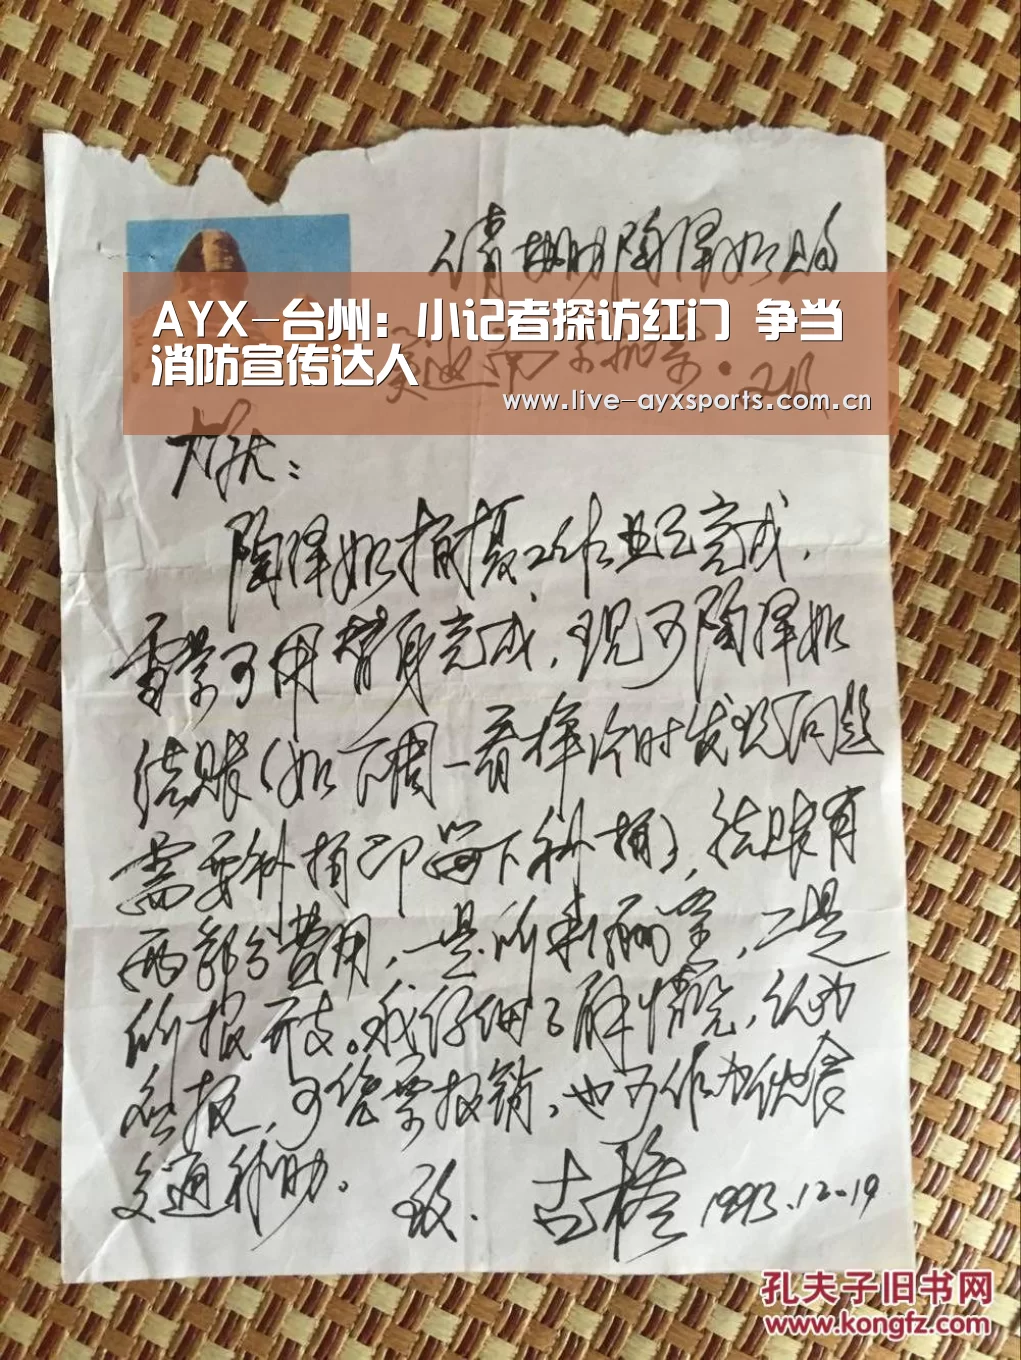 请 陶泽如
AYX-台州：小记者探访红门 争当
消防宣传达人
www.live-ayxsports.com.cn
陶泽如拍摄工作业已完成，
雷蒙可用替身完成，现可陶泽如
结账（如下周一看样片时发现问题
需要补拍即留下补拍），结账有
两部分费用，一是所剩酬金，二是
所报开支。我仔细了解情况，认为
应报，可凭票报销，也可作为伙食
交通补助。
致
古榕 1993.12.19
孔夫子旧书网
www.kongfz.com